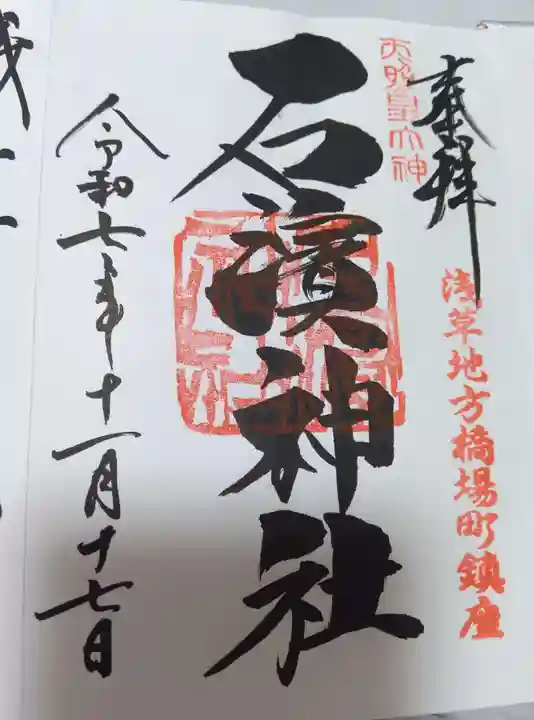 奉拝
天照皇大神
浅草地方橋場町鎮座
石濱神社
令和七年十一月十七日